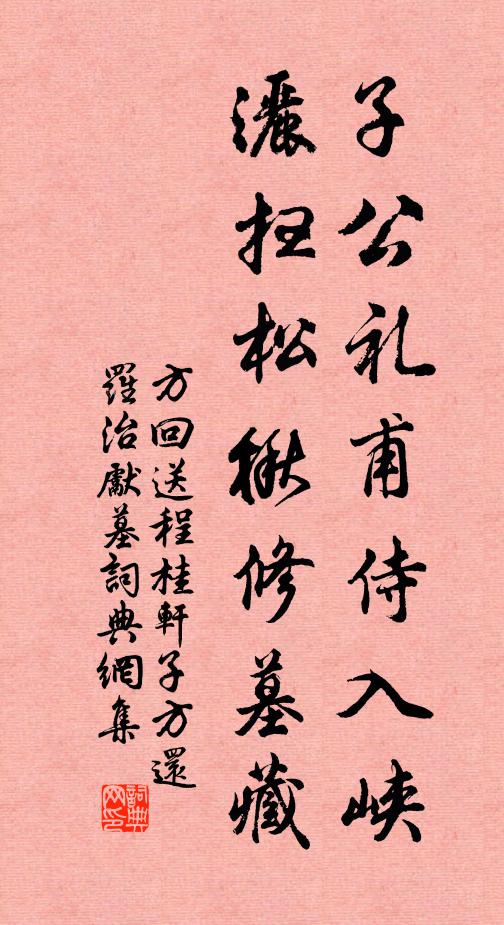 子公礼甫侍入峡
灑扫松楸修墓藏
方回送程桂軒子方還
羅治獻墓詞典網集
詞典网印